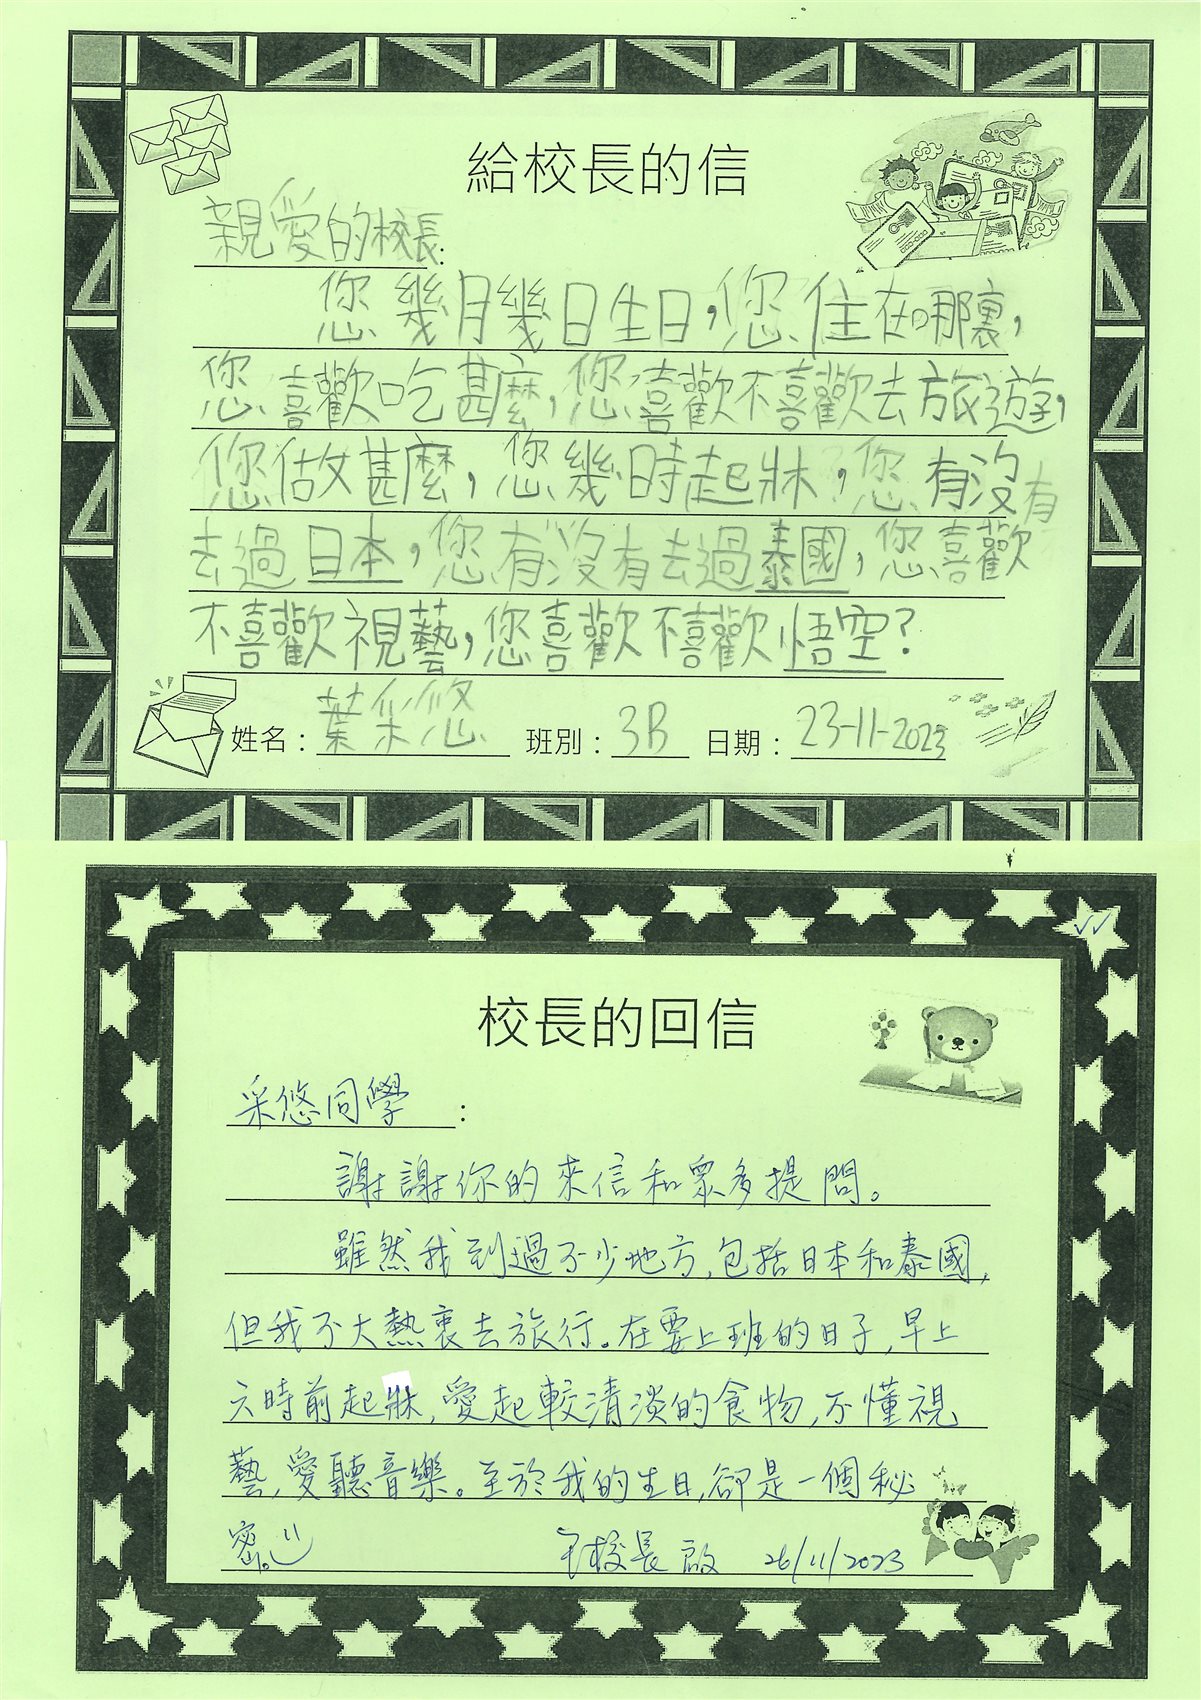 給校長的信
親愛的校長:
您幾月幾日生日，您住在哪裏，
您喜歡吃甚麼，您喜歡不喜歡去旅遊，
您做甚麼，您幾時起牀，您有沒有
去過日本，您有沒有去過泰國，您喜歡
不喜歡視藝，您喜歡不喜歡悟空?
姓名：葉采悠 班別：3B 日期：23-11-2023
校長的回信
采悠同學：
謝謝你的來信和眾多提問。
雖然我到過不少地方，包括日本和泰國，
但我不大熱衷去旅行。在要上班的日子，早上
六時前起牀，愛起較清淡的食物，不懂視
藝，愛聽音樂。至於我的生日，卻是一個秘
密。
校長啟 26/11/2023